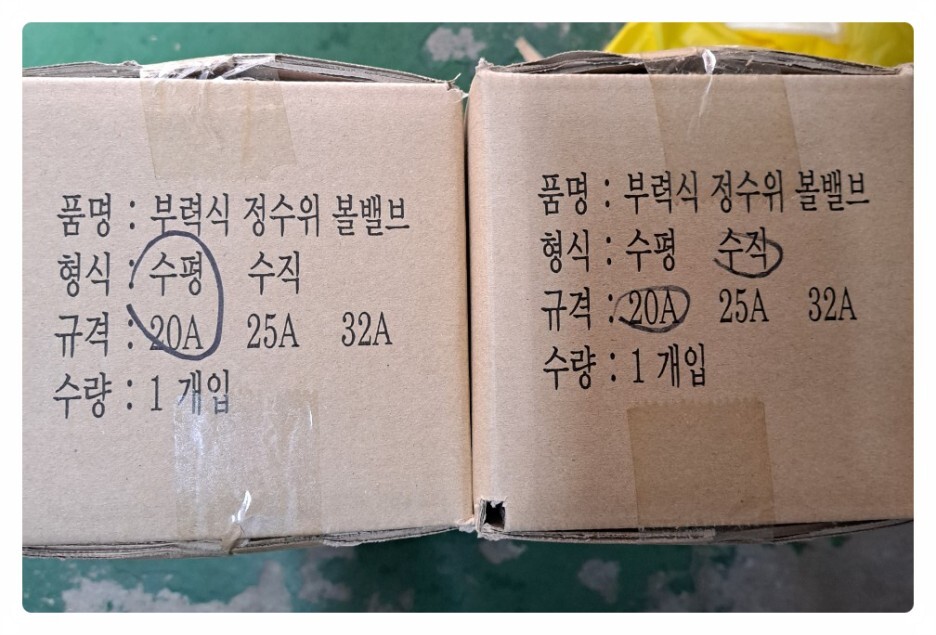 품명 : 부력식 정수위 볼밸브
형식 : 수평 수직
규격 : 20A 25A 32A
수량 : 1 개입
품명 : 부력식 정수위 볼밸브
형식 : 수평 수직
규격 : 20A 25A 32A
수량 : 1 개입